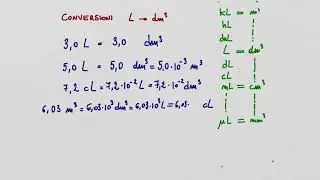 CONVERSIONI L → dm³
3,0 L = 3,0 dm³
5,0 L = 5,0 dm³ = 5,0·10⁻³ m³
7,2 cL = 7,2·10⁻²L = 7,2·10⁻² dm³
6,03 m³ = 6,03·10³dm³ = 6,03·10³L = 6,03· cL
kL = m³
hL
daL
L = dm³
dL
cL
mL = cm³
μL = mm³